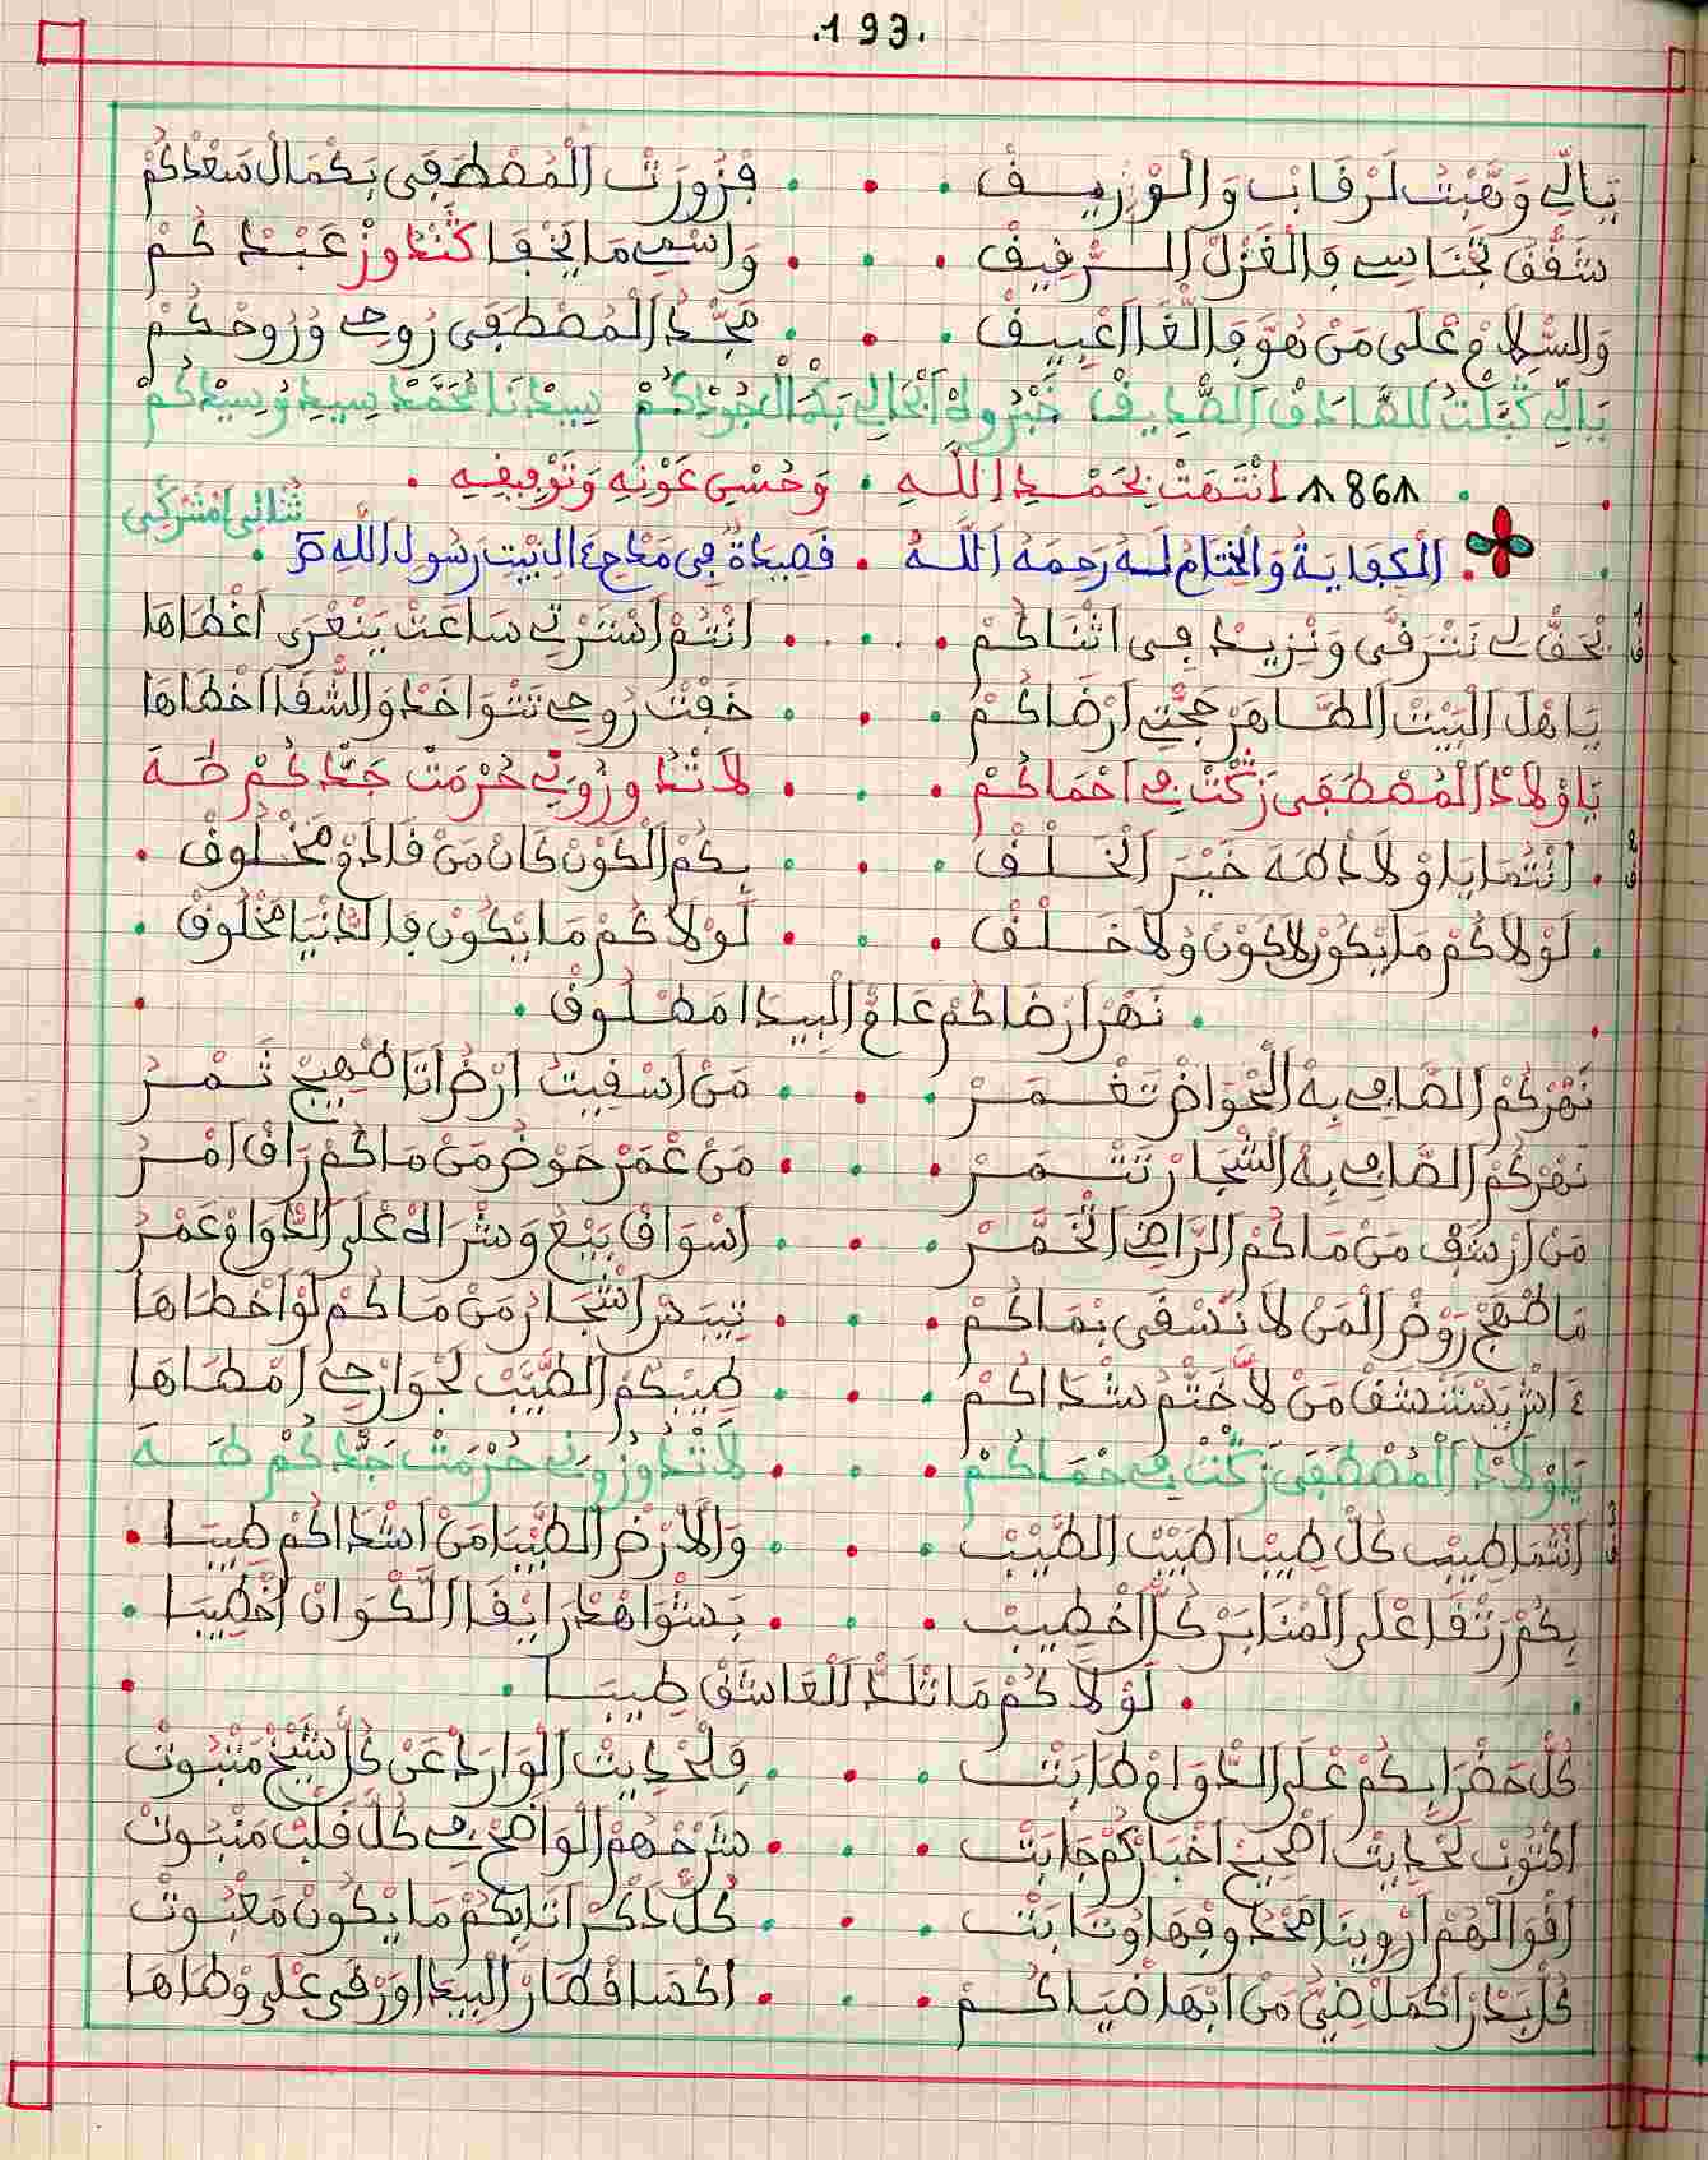 .193.
يَالِّي وَهَبْتْ لَرْقَابْ وَالْوْزِيفْ . . . فْزُورَتْ الْمُصْطَفَى بَكْمَالْ سَعْدْكُمْ
شَقَّقْ تَجْنَاسِي فَالْغَزْلْ الرّْقِيقْ . . . وَاسْمِي مَا يَخْفَا كَنْدُوزْ عَبْدْكُمْ
وَالسّْلَامْ عْلَى مَنْ هُوَّ فَالْغَا اعْبِيقْ . . . مَجَّدْ الْمُصْطَفَى رُوحِي وْرُوحْكُمْ
يَالِّي كَمَّلْتْ الصَّادَقْ الصّْدِيقْ خَبْرُوهْ ابْحَالِي بَكْمَالْ جُودْكُمْ سِيدْنَا مُحَمَّدْ سِيدِي وْسِيدْكُمْ
. 86 انْتَهَتْ بِحَمْدِ اللَّهِ . وَحُسْنِ عَوْنِهِ وَتَوْفِيقِهِ .
ثُنَائِي امْشَرْكِي
. الْكِفَايَةُ وَالْخِتَامُ لَهُ رَحِمَهُ اللَّهُ . قَصِيدَةٌ فِي مَدْحِ ءَالِ الْبَيْتِ رَسُولِ اللَّهِ ﷺ .
بْحَقّْ لِي نَتْرَقَّى وَنْزِيدْ فِي اثْنَاكُمْ . . . انْتُمْ اشْرَرْتِي سَاعَتْ يَنْعْرَى اغْطَاهَا
يَا هْلْ الْبَيْتْ الطَّاهَرْ جِيتْ ارْضَاكُمْ . . . خَفْتْ رُوحِي تَتْوَاخَدْ وَالشّْقَا اخْطَاهَا
يَا وْلَادْ الْمُصْطَفَى رَكْتْ فِي احْمَاكُمْ . . . لَا تْدُوزُونِي حُرْمَتْ جَدّْكُمْ طَهَ
. انْتُمَا يَا وْلَادْ طَهَ خَيْرْ الْخَلْقْ . . . بِكُمْ الْكَوْنْ كَانْ مَنْ قَادَمْ مَخْلُوقْ .
. لَوْلَاكُمْ مَا يْكُونْ لَا كَوْنْ وْلَا خَلْقْ . . . لَوْلَاكُمْ مَا يْكُونْ فَالدَّنْيَا مَخْلُوقْ .
. نَهْرْ ارْضَاكُمْ عَامّْ الْبِيدَا مَطْلُوقْ .
نَهْرْكُمْ الصَّافِي بِهْ الْحْوَاضْ تَغْمَرْ . . . مَنْ اسْقِيتْ ارْضْ اتَاهْ ابْهِيجْ ثَمْرْ
نَهْرْكُمْ الصَّافِي بِهْ الشّْجَارْ تَثْمَرْ . . . مَنْ عْمَرْ حَوْضْ مَنْ مَاكُمْ رَاقْ امْرْ
مَنْ ارْشَفْ مَنْ مَاكُمْ الرَّاضِي الْخَمَّرْ . . . اسْوَاقْ بَيْعْ وَشْرَاهْ عْلَى الدّْوَامْ عَمْرْ
مَا بْهَجْ رَوْضْ الْمَنْ لَا نَسْقَى بْمَاكُمْ . . . تِيبَسْ اشْجَارْ مَنْ مَاكُمْ لَوْ اخْطَاهَا
ءَاشْ يَسْتَنْشَقْ مَنْ لَا خَتّْمْ شْدَاكُمْ . . . طِيبْكُمْ الطَّيَّبْ لَجْوَارْحِي امْطَاهَا
يَا وْلَادْ الْمُصْطَفَى رَكْتْ فِي حْمَاكُمْ . . . لَا تْدُوزُونِي حُرْمَتْ جَدّْكُمْ طَهَ
انْتُمَا طِيبْ كُلّْ طِيبْ اطْيَبْ الطَّيَّبْ . . . وَالَارْضْ الطَّيّْبَا مَنْ اشْدَاكُمْ طِيبَا .
بِكُمْ رْتْقَا عْلَى الْمْنَابَرْ كُلّْ اخْطِيبْ . . . بَسْتْوَاهْدْ رَايْقَا الَكْوَانْ اخْطِيبَا .
. لَوْلَاكُمْ مَا تْلَدّْ الْعَاشَقْ طِيبَا .
كُلّْ حَضْرَا بِكُمْ عْلَى الدّْوَامْ طَابَتْ . . . فَلْحْدِيتْ الْوَارَدْ عَنْ كُلّْ شَيْخْ مَتْبُوتْ
اكْتُوبْ لَحْدِيتْ اصْحِيحْ اخْبَارْكُمْ جَابَتْ . . . شَرْحْهُمْ الْوَاضَحْ فِي كُلّْ قَلْبْ مَنْبُوتْ
اقْوَالْهُمْ ارْوِينَا مَحْدُوقِهَا وْتَابَتْ . . . كُلّْ دَكْرْ اتَا بِكُمْ مَا يْكُونْ مَغْبُوتْ
كُلّْ بَدْرْ اكْمَلْ ضَيّْ مَنْ ابْهَا ضْيَاكُمْ . . . اكْصَا قْطَارْ الْبِيدَا وْرْقَى عْلَى وْطَاهَا